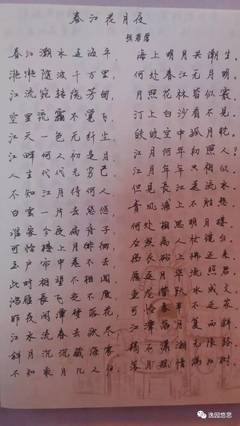 春江花月夜
张若虚
春江潮水连海平 海上明月共潮生
滟滟随波千万里 何处春江无月明
江流宛转绕芳甸 月照花林皆似霰
空里流霜不觉飞 汀上白沙看不见
江天一色无纤尘 皎皎空中孤月轮
江畔何人初见月 江月何年初照人
人生代代无穷已 江月年年只相似
不知江月待何人 但见长江送流水
白云一片去悠悠 青枫浦上不胜愁
谁家今夜扁舟子 何处相思明月楼
可怜楼上月徘徊 应照离人妆镜台
玉户帘中卷不去 捣衣砧上拂还来
此时相望不相闻 愿逐月华流照君
鸿雁长飞光不度 鱼龙潜跃水成文
昨夜闲潭梦落花 可怜春半不还家
江水流春去欲尽 江潭落月复西斜
斜月沉沉藏海雾 碣石潇湘无限路
不知乘月几人归 落月摇情满江树